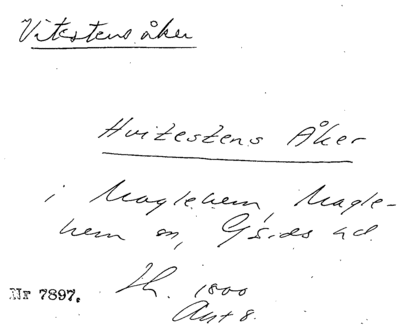 Vitestens åker
Hvitestens Åker
i Maglehem, Magle-
hem sn, Gärds hd.
Nr 7897. Sk. 1800
Akt 8.